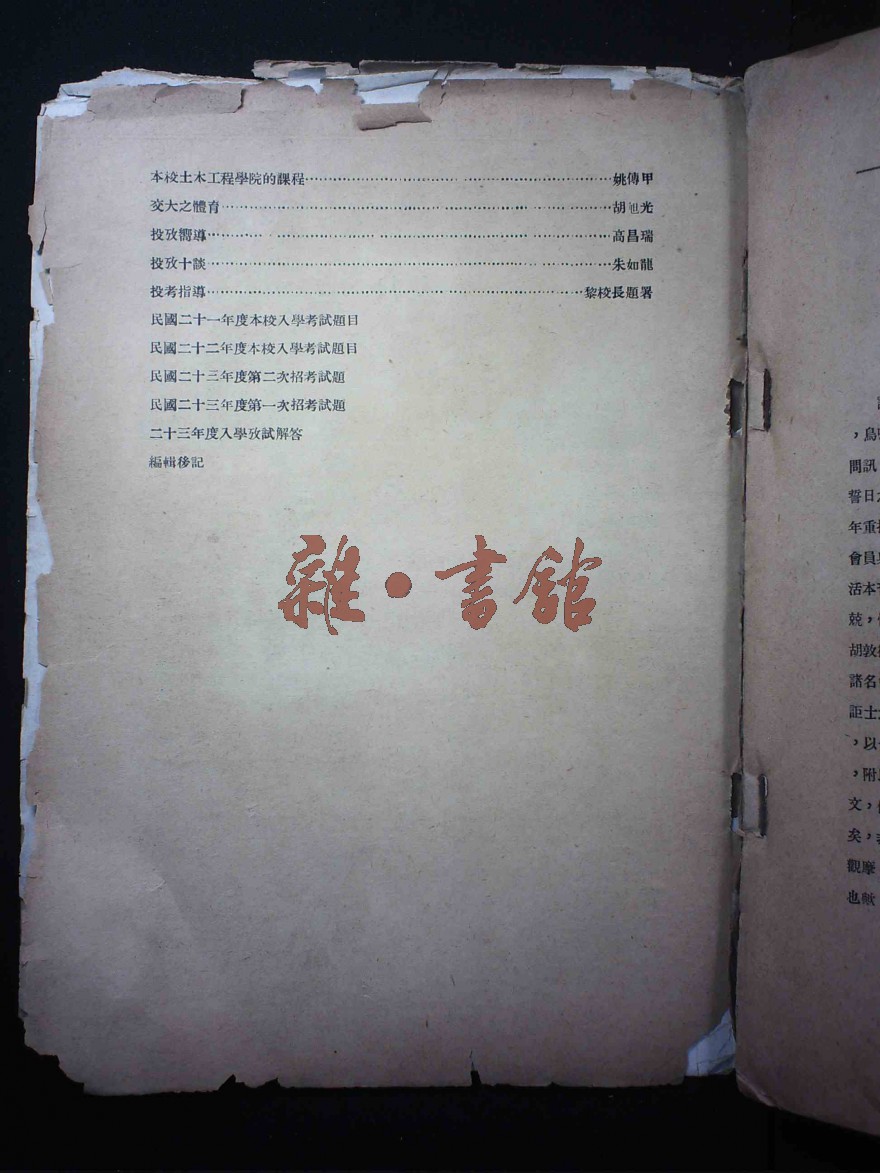 本校土木工程學院的課程……姚傳甲
交大之體育……胡旭光
投攷嚮導……高昌瑞
投攷十談……朱如龍
投考指導……黎校長題署
民國二十一年度本校入學考試題目
民國二十二年度本校入學考試題目
民國二十三年度第二次招考試題
民國二十三年度第一次招考試題
二十三年度入學攷試解答
編輯後記
雜·書館
問訊
誓日
年重
會員
活本
兢，
胡敦
諸名
詎士
，以
，附
文，
矣，
觀摩
也歟